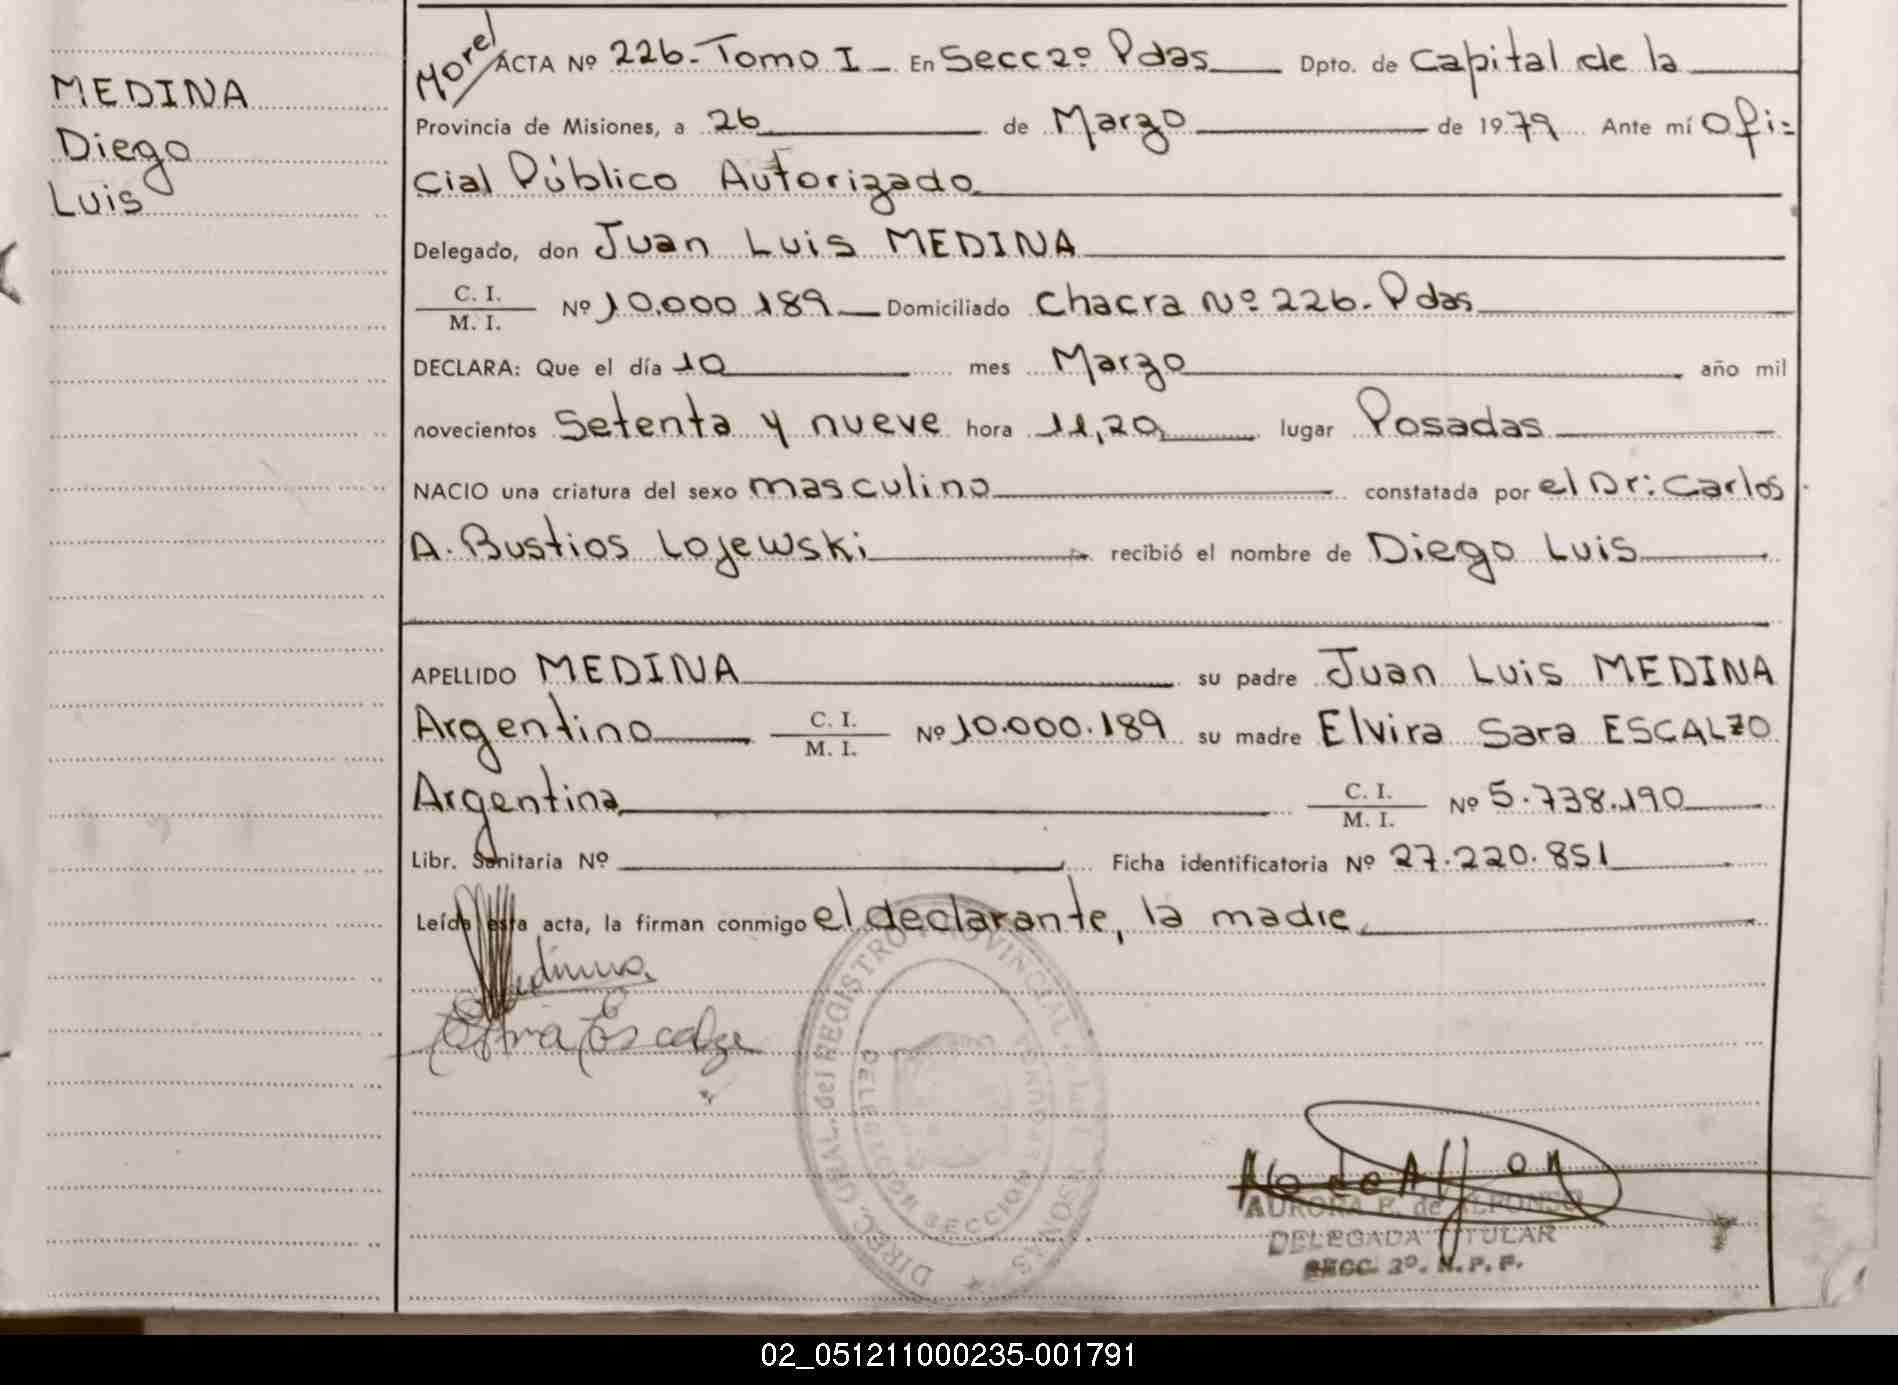 MEDINA
Diego
Luis
Morel
ACTA Nº 226. Tomo I En Secc 2º Pdas Dpto. de Capital de la
Provincia de Misiones, a 26 de Marzo de 1979 Ante mí Ofi=
cial Público Autorizado
Delegado, don Juan Luis MEDINA
C. I.
M. I. Nº 10.000.189 Domiciliado Chacra Nº 226. Pdas
DECLARA: Que el día 10 mes Marzo año mil
novecientos Setenta y nueve hora 11,20 lugar Posadas
NACIO una criatura del sexo masculino constatada por el Dr: Carlos
A. Bustios Lojewski recibió el nombre de Diego Luis
APELLIDO MEDINA su padre Juan Luis MEDINA
Argentino C. I. M. I. Nº 10.000.189 su madre Elvira Sara ESCALZO
Argentina C. I. M. I. Nº 5.738.190
Libr. Sanitaria Nº Ficha identificatoria Nº 27.220.851
Leída esta acta, la firman conmigo el declarante, la madre
Medina
Elvira Escalzo
DIREC. GRAL. del REGISTRO PROVINCIAL
SECCION
AURORA E. de ALFONSO
DELEGADA TITULAR
SECC. 2º. N.P.P.
02_051211000235-001791